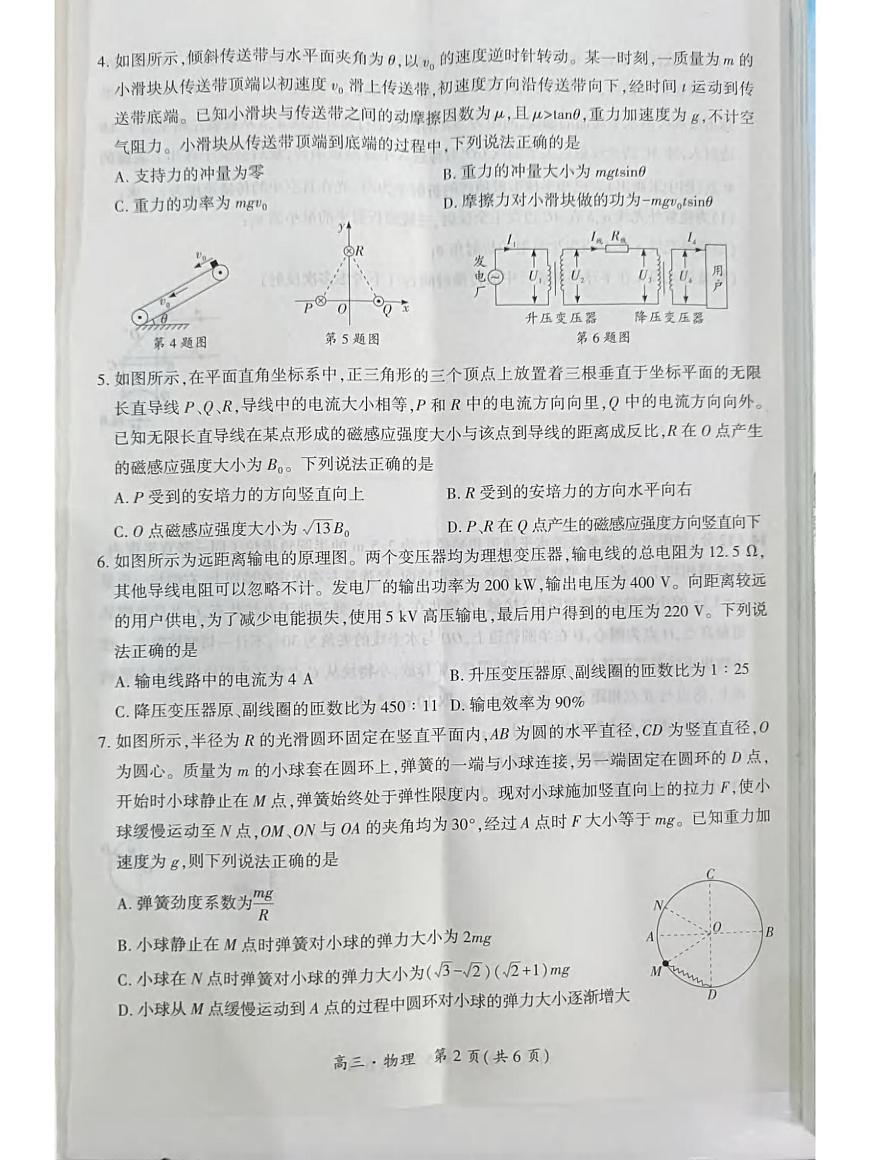 4. 如图所示,倾斜传送带与水平面夹角为 θ,以 v₀ 的速度逆时针转动。某一时刻,一质量为 m 的
小滑块从传送带顶端以初速度 v₀ 滑上传送带,初速度方向沿传送带向下,经时间 t 运动到传
送带底端。已知小滑块与传送带之间的动摩擦因数为 μ,且 μ>tanθ,重力加速度为 g,不计空
气阻力。小滑块从传送带顶端到底端的过程中,下列说法正确的是
A. 支持力的冲量为零 B. 重力的冲量大小为 mgtsinθ
C. 重力的功率为 mgv₀ D. 摩擦力对小滑块做的功为-mgv₀tsinθ
v₀ v₀ θ
第 4 题图
y R P O Q x
第 5 题图
I₁ I线 R线 I₄
发电厂 U₁ U₂ U₃ U₄ 用户
升压变压器 降压变压器
第 6 题图
5. 如图所示,在平面直角坐标系中,正三角形的三个顶点上放置着三根垂直于坐标平面的无限
长直导线 P、Q、R,导线中的电流大小相等,P 和 R 中的电流方向向里,Q 中的电流方向向外。
已知无限长直导线在某点形成的磁感应强度大小与该点到导线的距离成反比,R 在 O 点产生
的磁感应强度大小为 B₀。下列说法正确的是
A. P 受到的安培力的方向竖直向上 B. R 受到的安培力的方向水平向右
C. O 点磁感应强度大小为 √13B₀ D. P、R 在 Q 点产生的磁感应强度方向竖直向下
6. 如图所示为远距离输电的原理图。两个变压器均为理想变压器,输电线的总电阻为 12.5 Ω,
其他导线电阻可以忽略不计。发电厂的输出功率为 200 kW,输出电压为 400 V。向距离较远
的用户供电,为了减少电能损失,使用 5 kV 高压输电,最后用户得到的电压为 220 V。下列说
法正确的是
A. 输电线路中的电流为 4 A B. 升压变压器原、副线圈的匝数比为 1∶25
C. 降压变压器原、副线圈的匝数比为 450∶11 D. 输电效率为 90%
7. 如图所示,半径为 R 的光滑圆环固定在竖直平面内,AB 为圆的水平直径,CD 为竖直直径,O
为圆心。质量为 m 的小球套在圆环上,弹簧的一端与小球连接,另一端固定在圆环的 D 点,
开始时小球静止在 M 点,弹簧始终处于弹性限度内。现对小球施加竖直向上的拉力 F,使小
球缓慢运动至 N 点,OM、ON 与 OA 的夹角均为 30°,经过 A 点时 F 大小等于 mg。已知重力加
速度为 g,则下列说法正确的是
A. 弹簧劲度系数为 mg/R
B. 小球静止在 M 点时弹簧对小球的弹力大小为 2mg
C. 小球在 N 点时弹簧对小球的弹力大小为(√3-√2)(√2+1)mg
D. 小球从 M 点缓慢运动到 A 点的过程中圆环对小球的弹力大小逐渐增大
C
N
A O B
M
D
高三·物理 第 2 页(共 6 页)